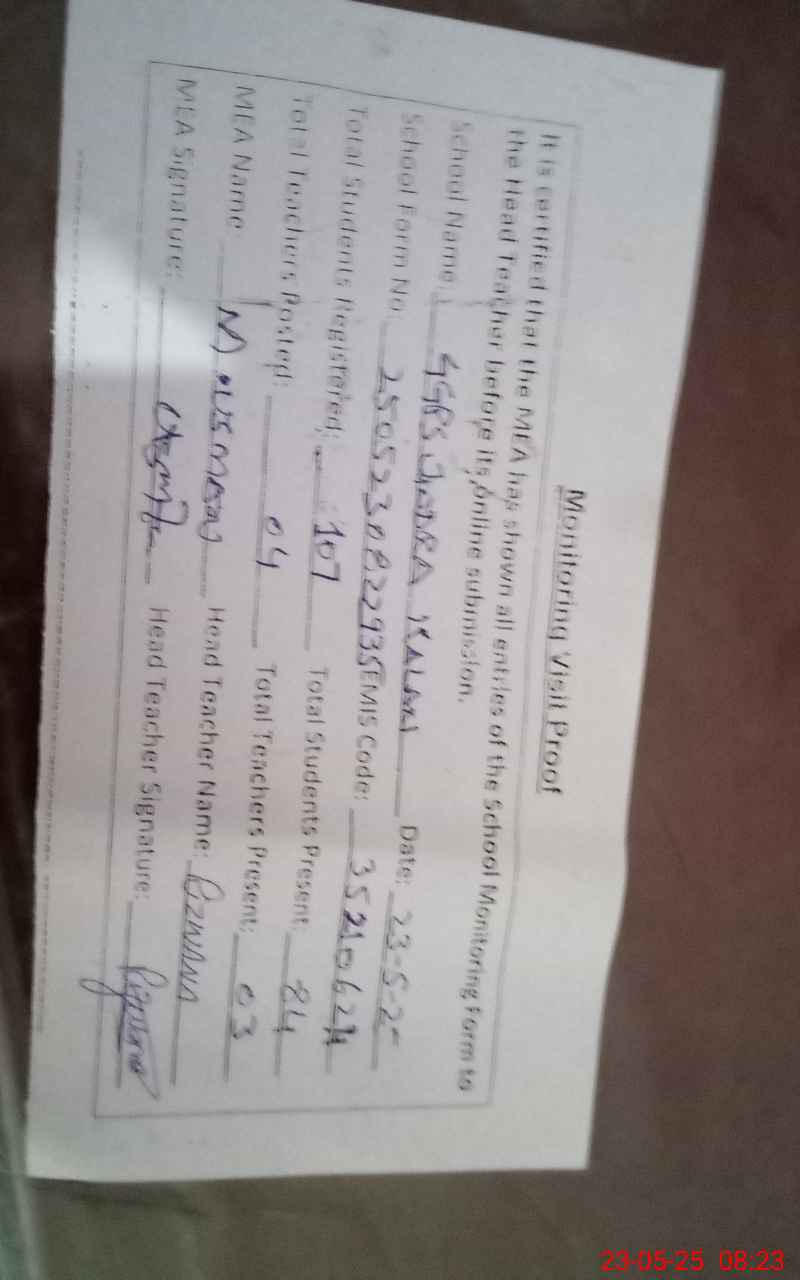 Monitoring Visit Proof
It is certified that the MEA has shown all entries of the School Monitoring Form to
the Head Teacher before its online submission.
School Name: GGPS KALAN Date: 23-5-25
School Form No: 2505230822935 EMIS Code: 35210624
Total Students Registered: 107 Total Students Present: 84
Total Teachers Posted: 04 Total Teachers Present: 03
MEA Name: M Head Teacher Name: Rizwana
MEA Signature: Head Teacher Signature:
23-05-25 08:23